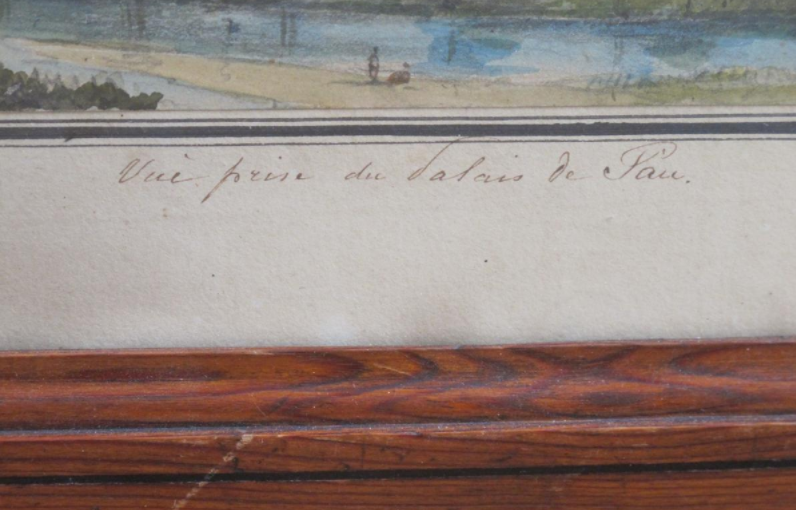 Vue prise du Palais de Pau.